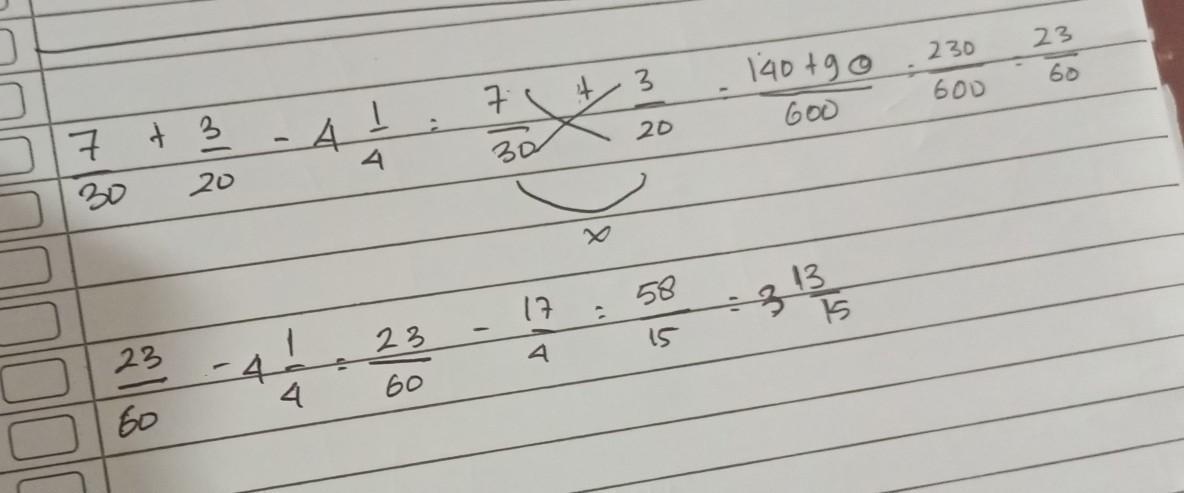 7/30 + 3/20 - 4 1/4 = 7/30 + 3/20 = 140+90/600 = 230/600 = 23/60
x
23/60 - 4 1/4 = 23/60 - 17/4 = 58/15 = 3 13/15